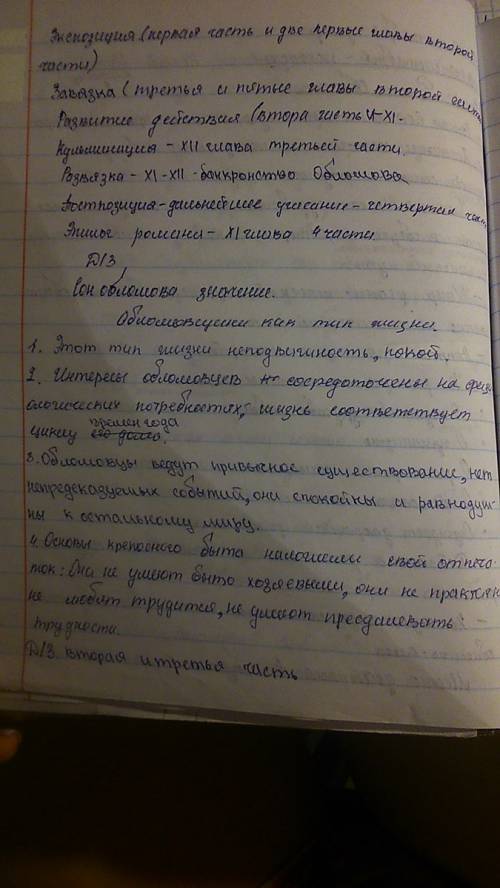 Экспозиция (первая часть и две первые главы второй
части)
Завязка (третья и пятые главы второй части
Развитие действия (втора часть VI-XI.
Кульминация - XII глава третьей части.
Развязка - XI-XII - банкронство Обломова
Постпозиция - дальнейшее описание - четвертая часть
Эпилог романа - XI глава 4 части.
Д/З
Сон обломова значение.
Обломовщина как тип жизни.
1. Этот тип жизни неподвигиность, покой.
2. Интересы обломовцев сосредоточены на физи
ологических потребностях, жизнь соответствует
циклу времен года
3. Обломовцы ведут привычное существование, нет
непредсказуемых событий, они спокойны и равнодуш-
ны к остальному миру.
4. Основы крепосного быта наложены свой отпеча-
ток: Они не умеют быть хозяевыми, они не практичн
не любят трудится, не умеют преодалевать
трудности.
Д/З вторая и третья часть